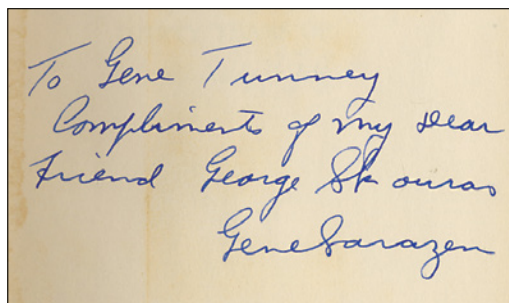 To Gene Tunney
Compliments of my dear
friend George Skouras
Gene Sarazen